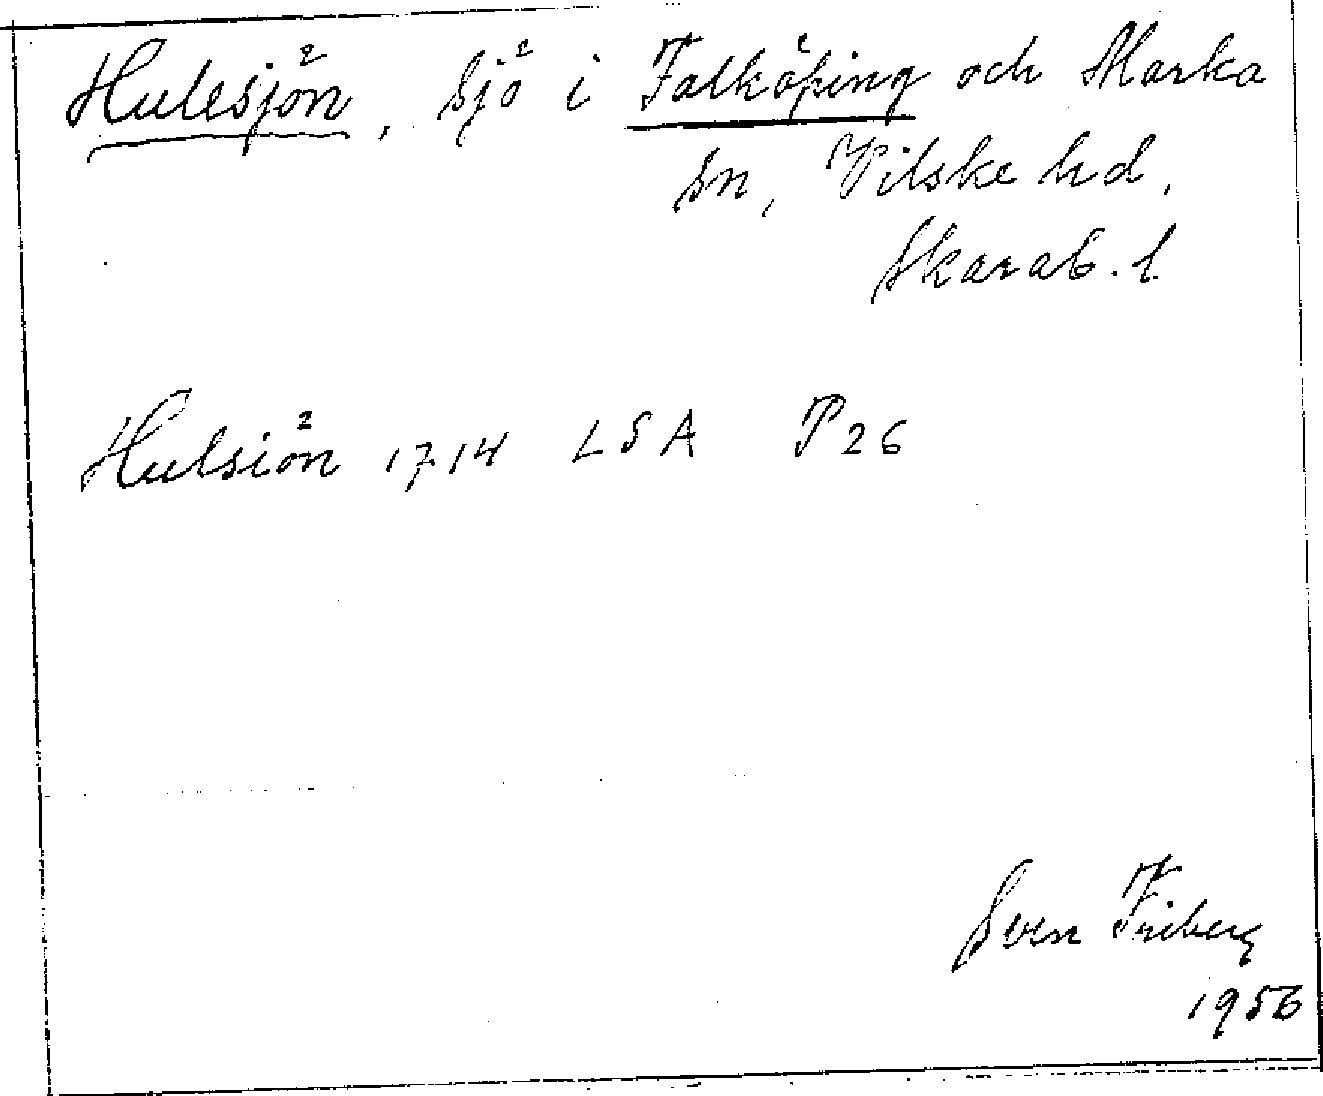 Hulesjön, sjö i Falköping och Marka
sn, Vilske hd,
Skarab. l.
Hulsiön 1714 LSA P26
Sven Friberg
1956